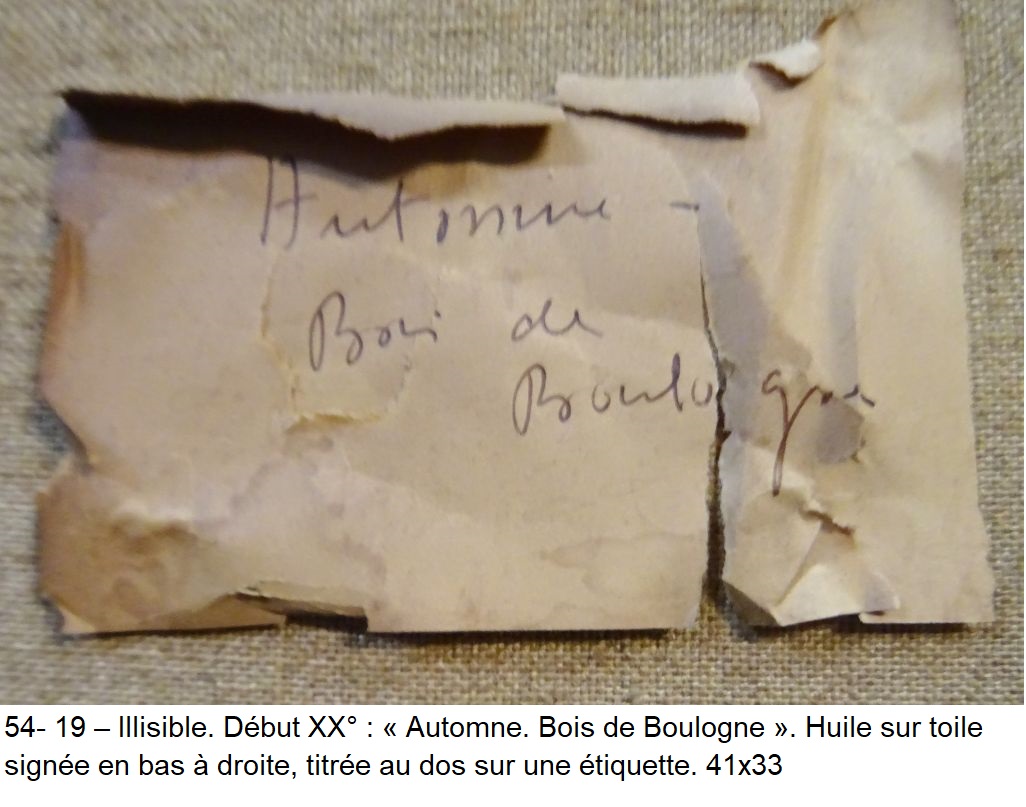 Automne -
Bois de
Boulogne
54- 19 – Illisible. Début XX° : « Automne. Bois de Boulogne ». Huile sur toile
signée en bas à droite, titrée au dos sur une étiquette. 41x33